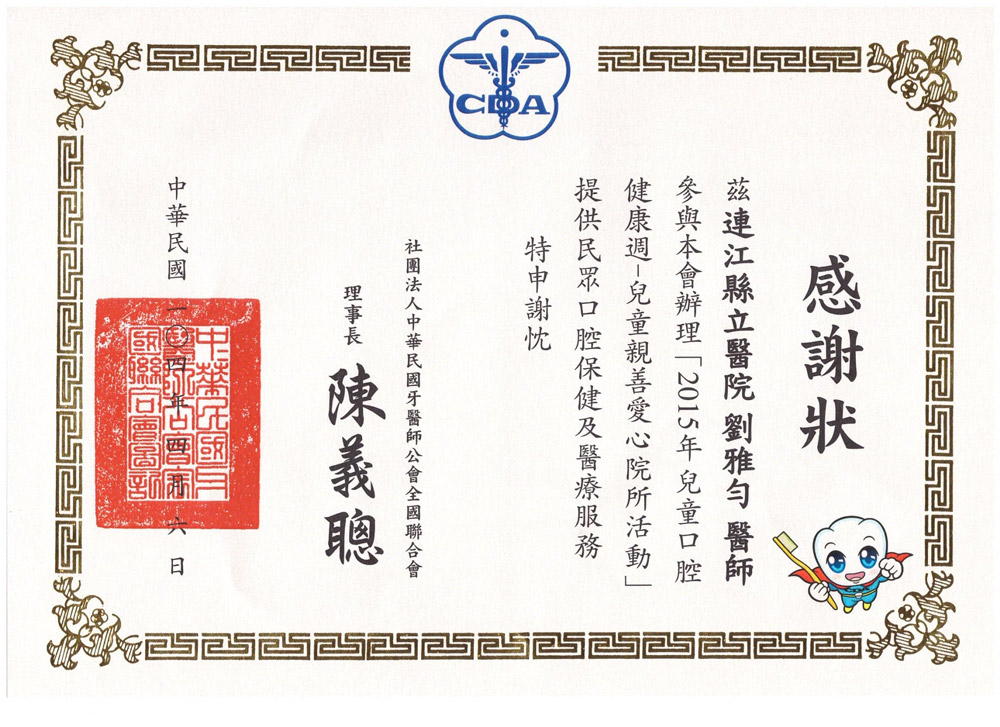 CDA
感謝狀
茲連江縣立醫院 劉雅勻 醫師
參與本會辦理「2015年兒童口腔
健康週–兒童親善愛心院所活動」
提供民眾口腔保健及醫療服務
特申謝忱
社團法人中華民國牙醫師公會全國聯合會
理事長 陳義聰
中華民國 一〇四年四月六日